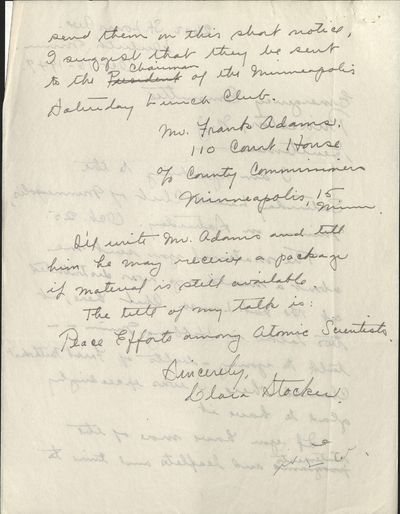 send them on this short notice,
I suggest that they be sent
Chairman
to the President of the Minneapolis
Saturday Lunch Club.
Mr. Frank Adams.
110 Court House
c/o County Commissioners
Minneapolis, 15
Minn.
I'll write Mr. Adams and tell
him he may receive a package
if material is still available.
The title of my talk is:
Peace Efforts among Atomic Scientists.
Sincerely,
Clara Stocker.